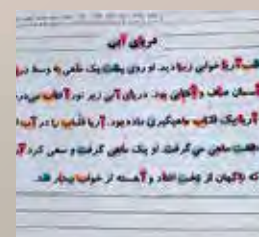 دریای آبی
شب آریا خوابی زیبا دید. او روی پشت یک ماهی به وسط دریا
آسمان صاف و آفتابی بود. دریای آبی زیر نور آفتاب می‌در
آریا یک قلاب ماهیگیری داده بود. آریا قلاب را در آب ا
ماهی می گرفت. او یک ماهی گرفت و سعی کرد آن
که ناگهان از پشت افتاد و آهسته از خواب بیدار شد.